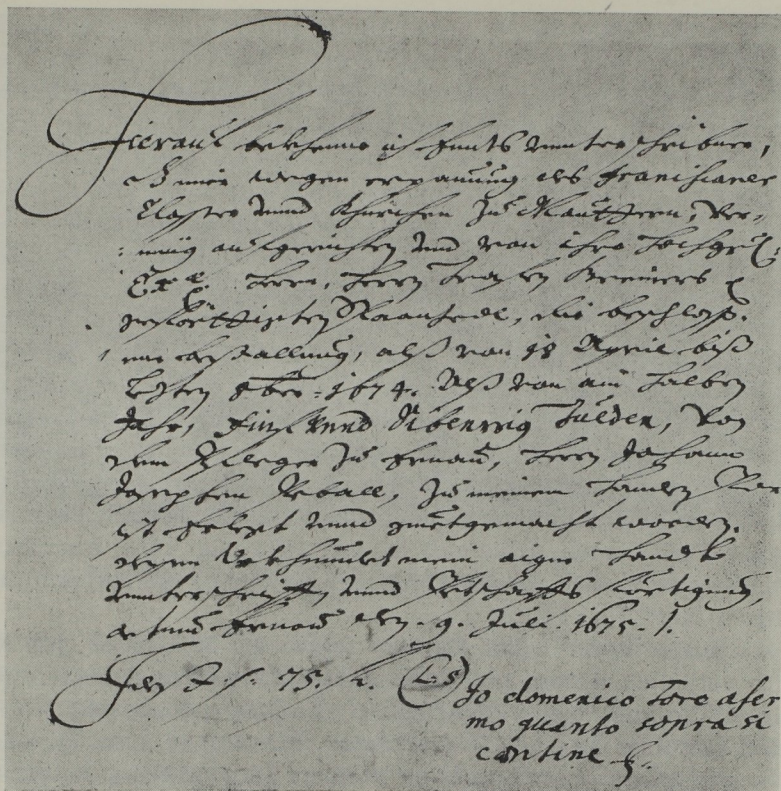 Hierauß bekhenne ich Endts unnterschribner,
das mir wegen erpauung des Franciscaner
Closters unnd Khirchen zu Mauttern, ver-
müg aufgerichten und von ihro Hochgräf:
Exc. Herrn, Herrn Grafen Breiners
geförttigten Spanzedl, die beschloss:
ne bestallung, alß von 18 April biß
lezten 8ber: 1674. Alß von ain halben
Jahr, Fünf unnd Sibenzig Gulden, von
dem Pfleger zu Ernau, Herrn Johann
Josephen, zu meinen handen
ist erlegt unnd guetgemacht worden.
dessen Urkhundet mein aigne Handt
unnterschrifft unnd Petschaffts förtigung,
actum Ernau den. 9. Juli. 1675.
Idest f: 75. (L.S)
Io domenico Tore afer
mo quanto sopra si
contine